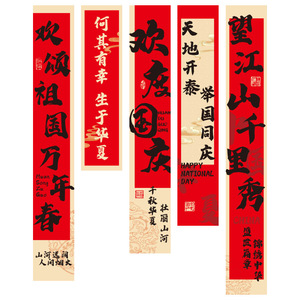 欢颂祖国万年春
山河远阔
人间烟火
何其有幸
生于华夏
欢度国庆
壮丽山河
千秋华夏
天地开泰
举国同庆
HAPPY
NATIONAL
DAY
望江山千里秀
锦绣中华